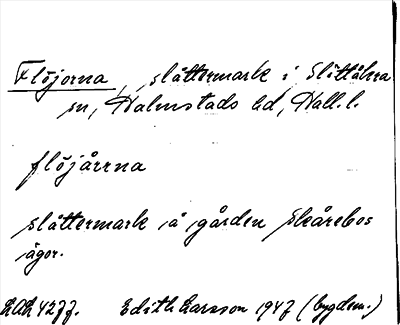 Flöjorna, slåttermark i Slättåkra
sn, Halmstads hd, Hall. l.
flöjårrna
slåttermark å gården Skårebos
ägor.
LAL 4277. Edith Larsson 1947 (bygdem.)